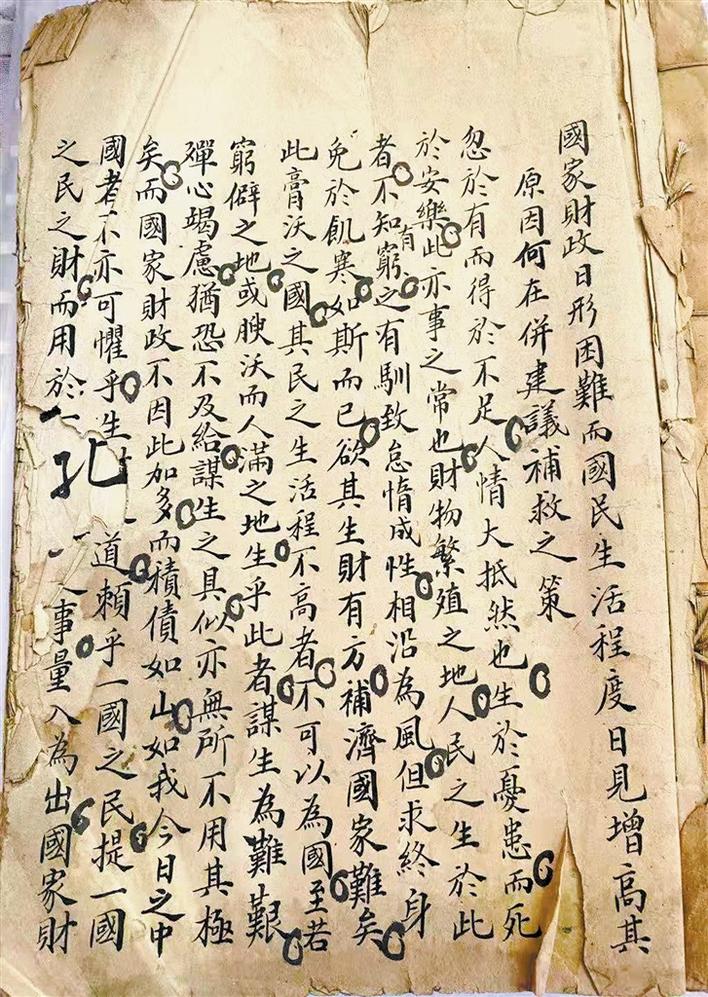 國家財政日形困難而國民生活程度日見增高其
原因何在併建議補救之策
忽於有而得於不足人情大抵然也生於憂患而死
於安樂此亦事之常也財物繁殖之地人民之生於此
者不知有窮之有馴致怠惰成性相沿為風但求終身
免於飢寒如斯而已欲其生財有方補濟國家難矣
此膏沃之國其民之生活程不高者不可以為國至若
窮僻之地或腴沃而人滿之地生乎此者謀生為難艱
殫心竭慮猶恐不及給謀生之具似亦無所不用其極
矣而國家財政不因此加多而積債如山如我今日之中
國者不亦可懼乎生道賴乎一國之民提一國
之民之財而用於孔事量入為出國家財